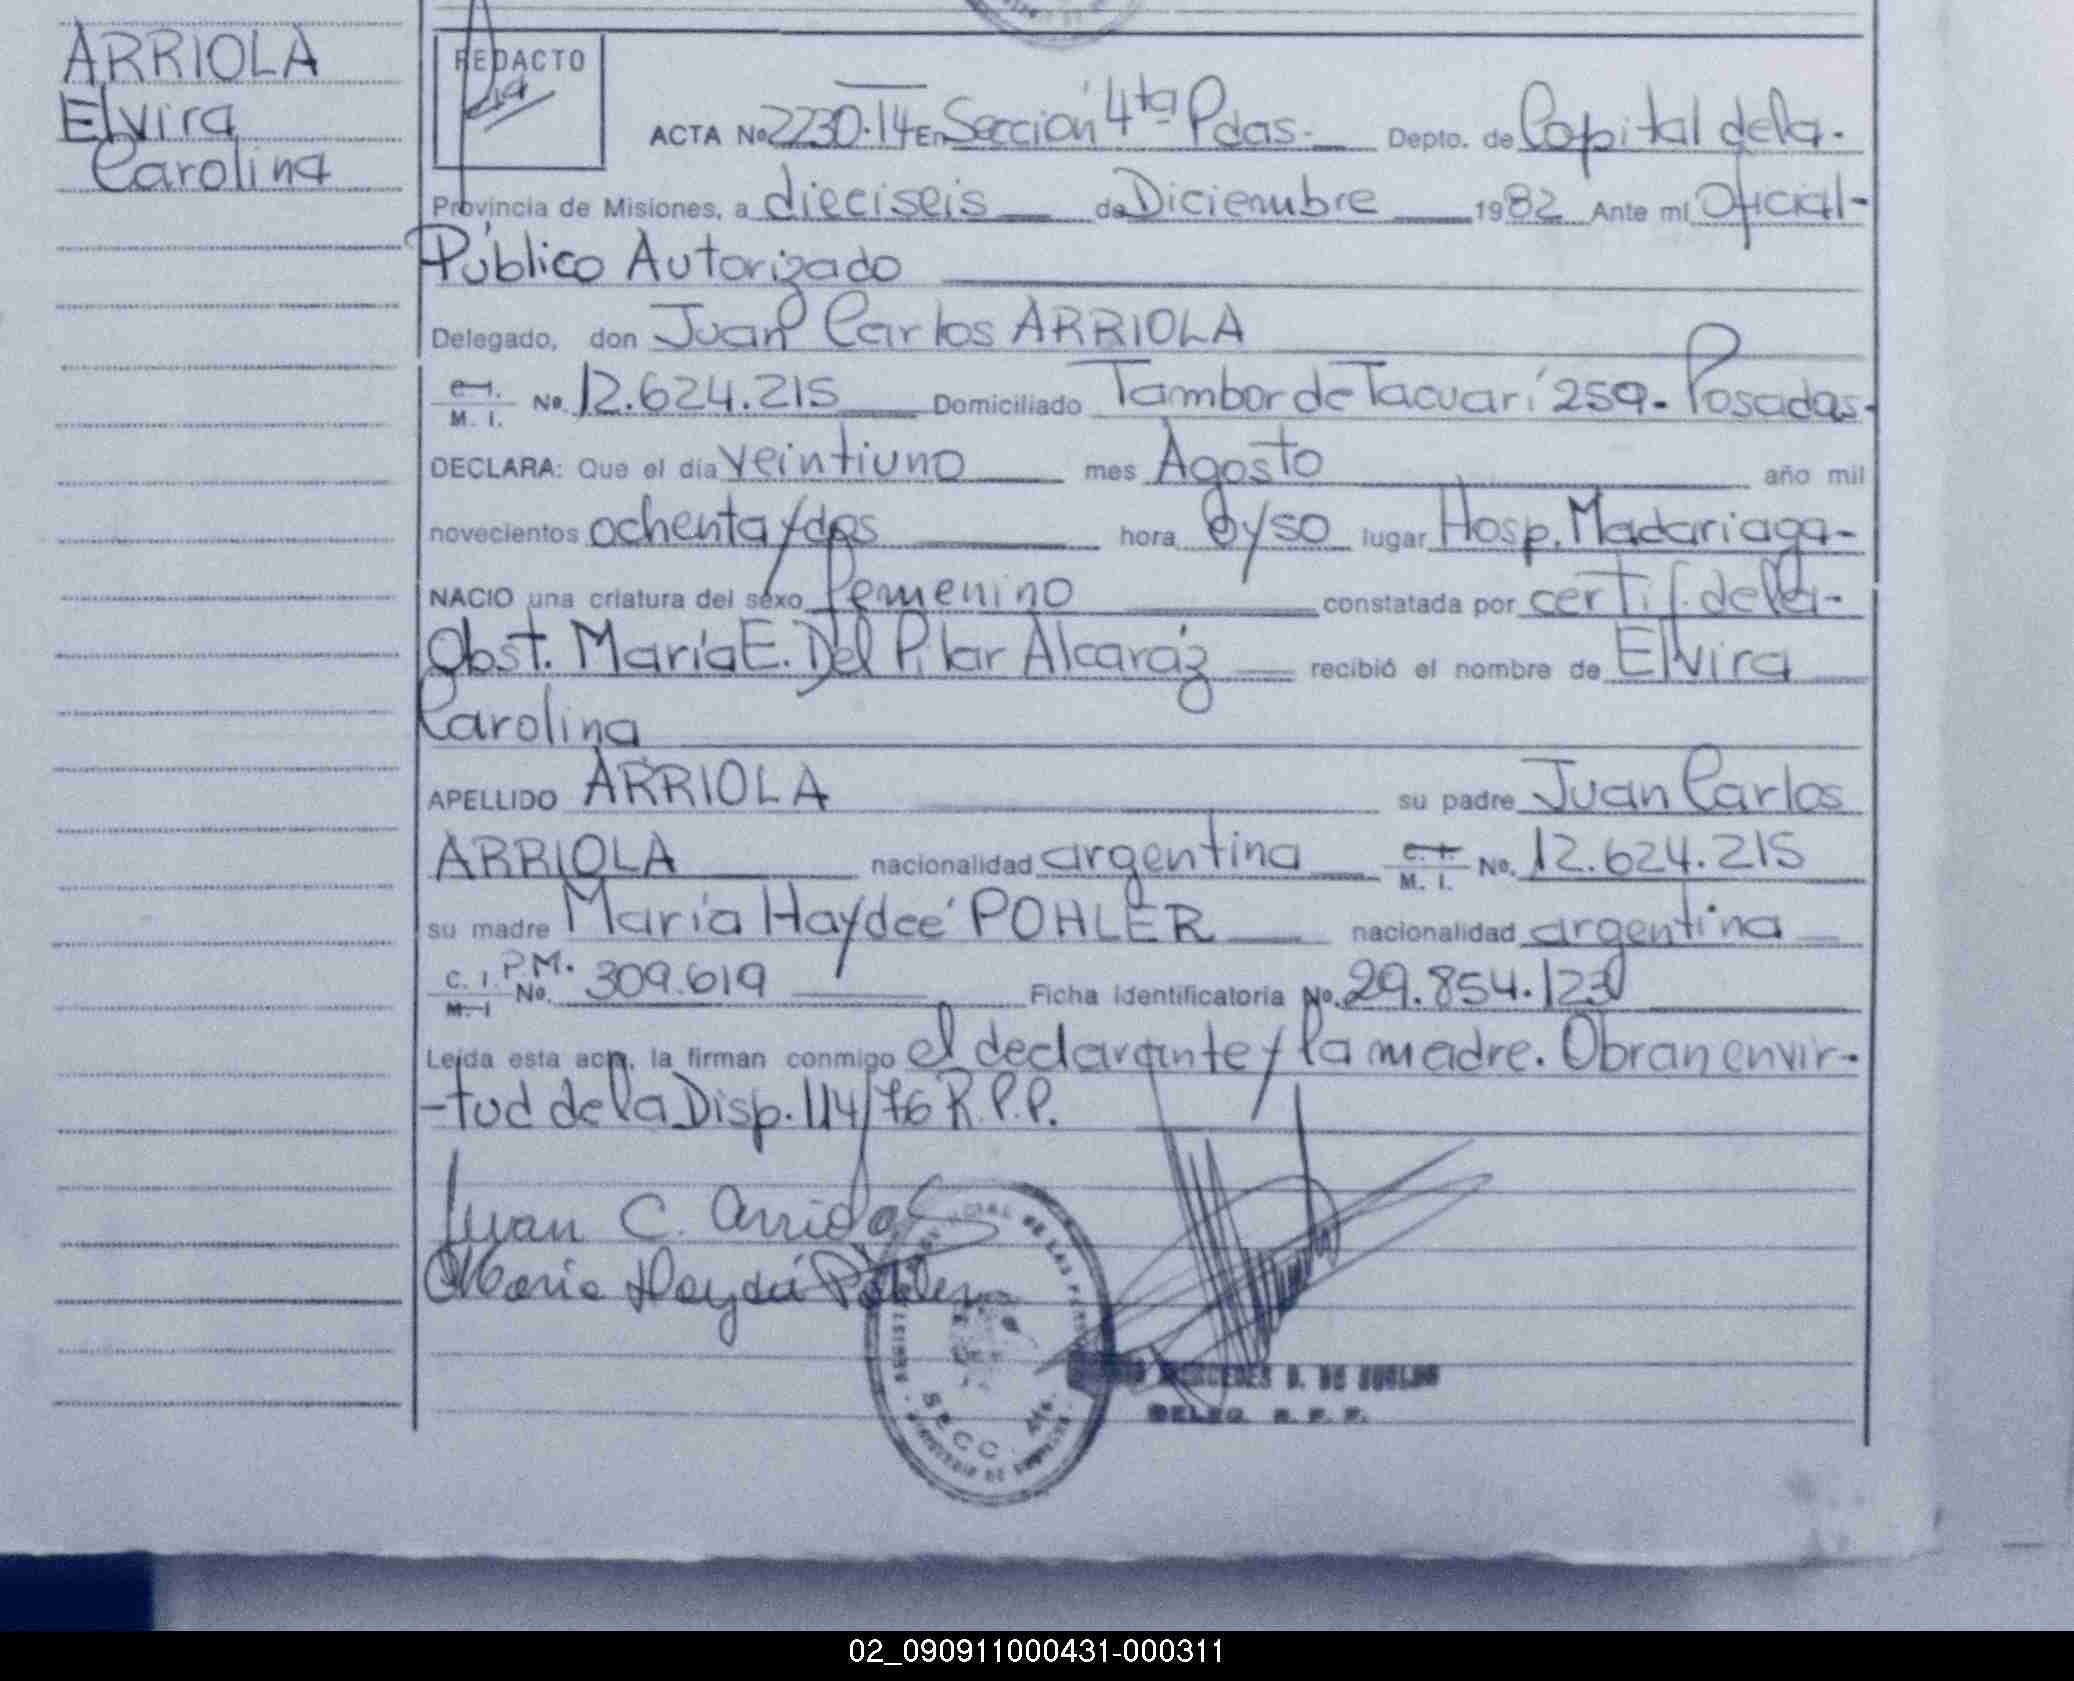 ARRIOLA
Elvira
Carolina
REDACTO
ACTA No 2230-14 En Sección 4ta Pdas. Depto. de Capital de la.
Provincia de Misiones, a dieciseis de Diciembre 1982 Ante mi Oficial-
Público Autorizado
Delegado, don Juan Carlos ARRIOLA
C.I. M. I. No. 12.624.215 Domiciliado Tambor de Tacuarí 259.- Posadas.
DECLARA: Que el día veintiuno mes Agosto año mil
novecientos ochenta y dos hora y 50 lugar Hosp. Madariaga-
NACIO una criatura del sexo femenino constatada por certif. de la-
Obst. María E. Del Pilar Alcaráz recibió el nombre de Elvira
Carolina
APELLIDO ARRIOLA su padre Juan Carlos
ARRIOLA nacionalidad argentina C. I. M. I. No. 12.624.215
su madre María Haydeé POHLER nacionalidad argentina
C. I. M-I P.M. No. 309.619 Ficha identificatoria No. 29.854.123
Leída esta acta, la firman conmigo el declarante y la madre. Obran en vir-
-tud de la Disp. 114/76 R.P.P.
Juan C. Arriola
Maria Haydeé Pohler
DE LAS
SECC. 4ta.
MERCEDES DE
DELEG. R. P. P.
02_090911000431-000311